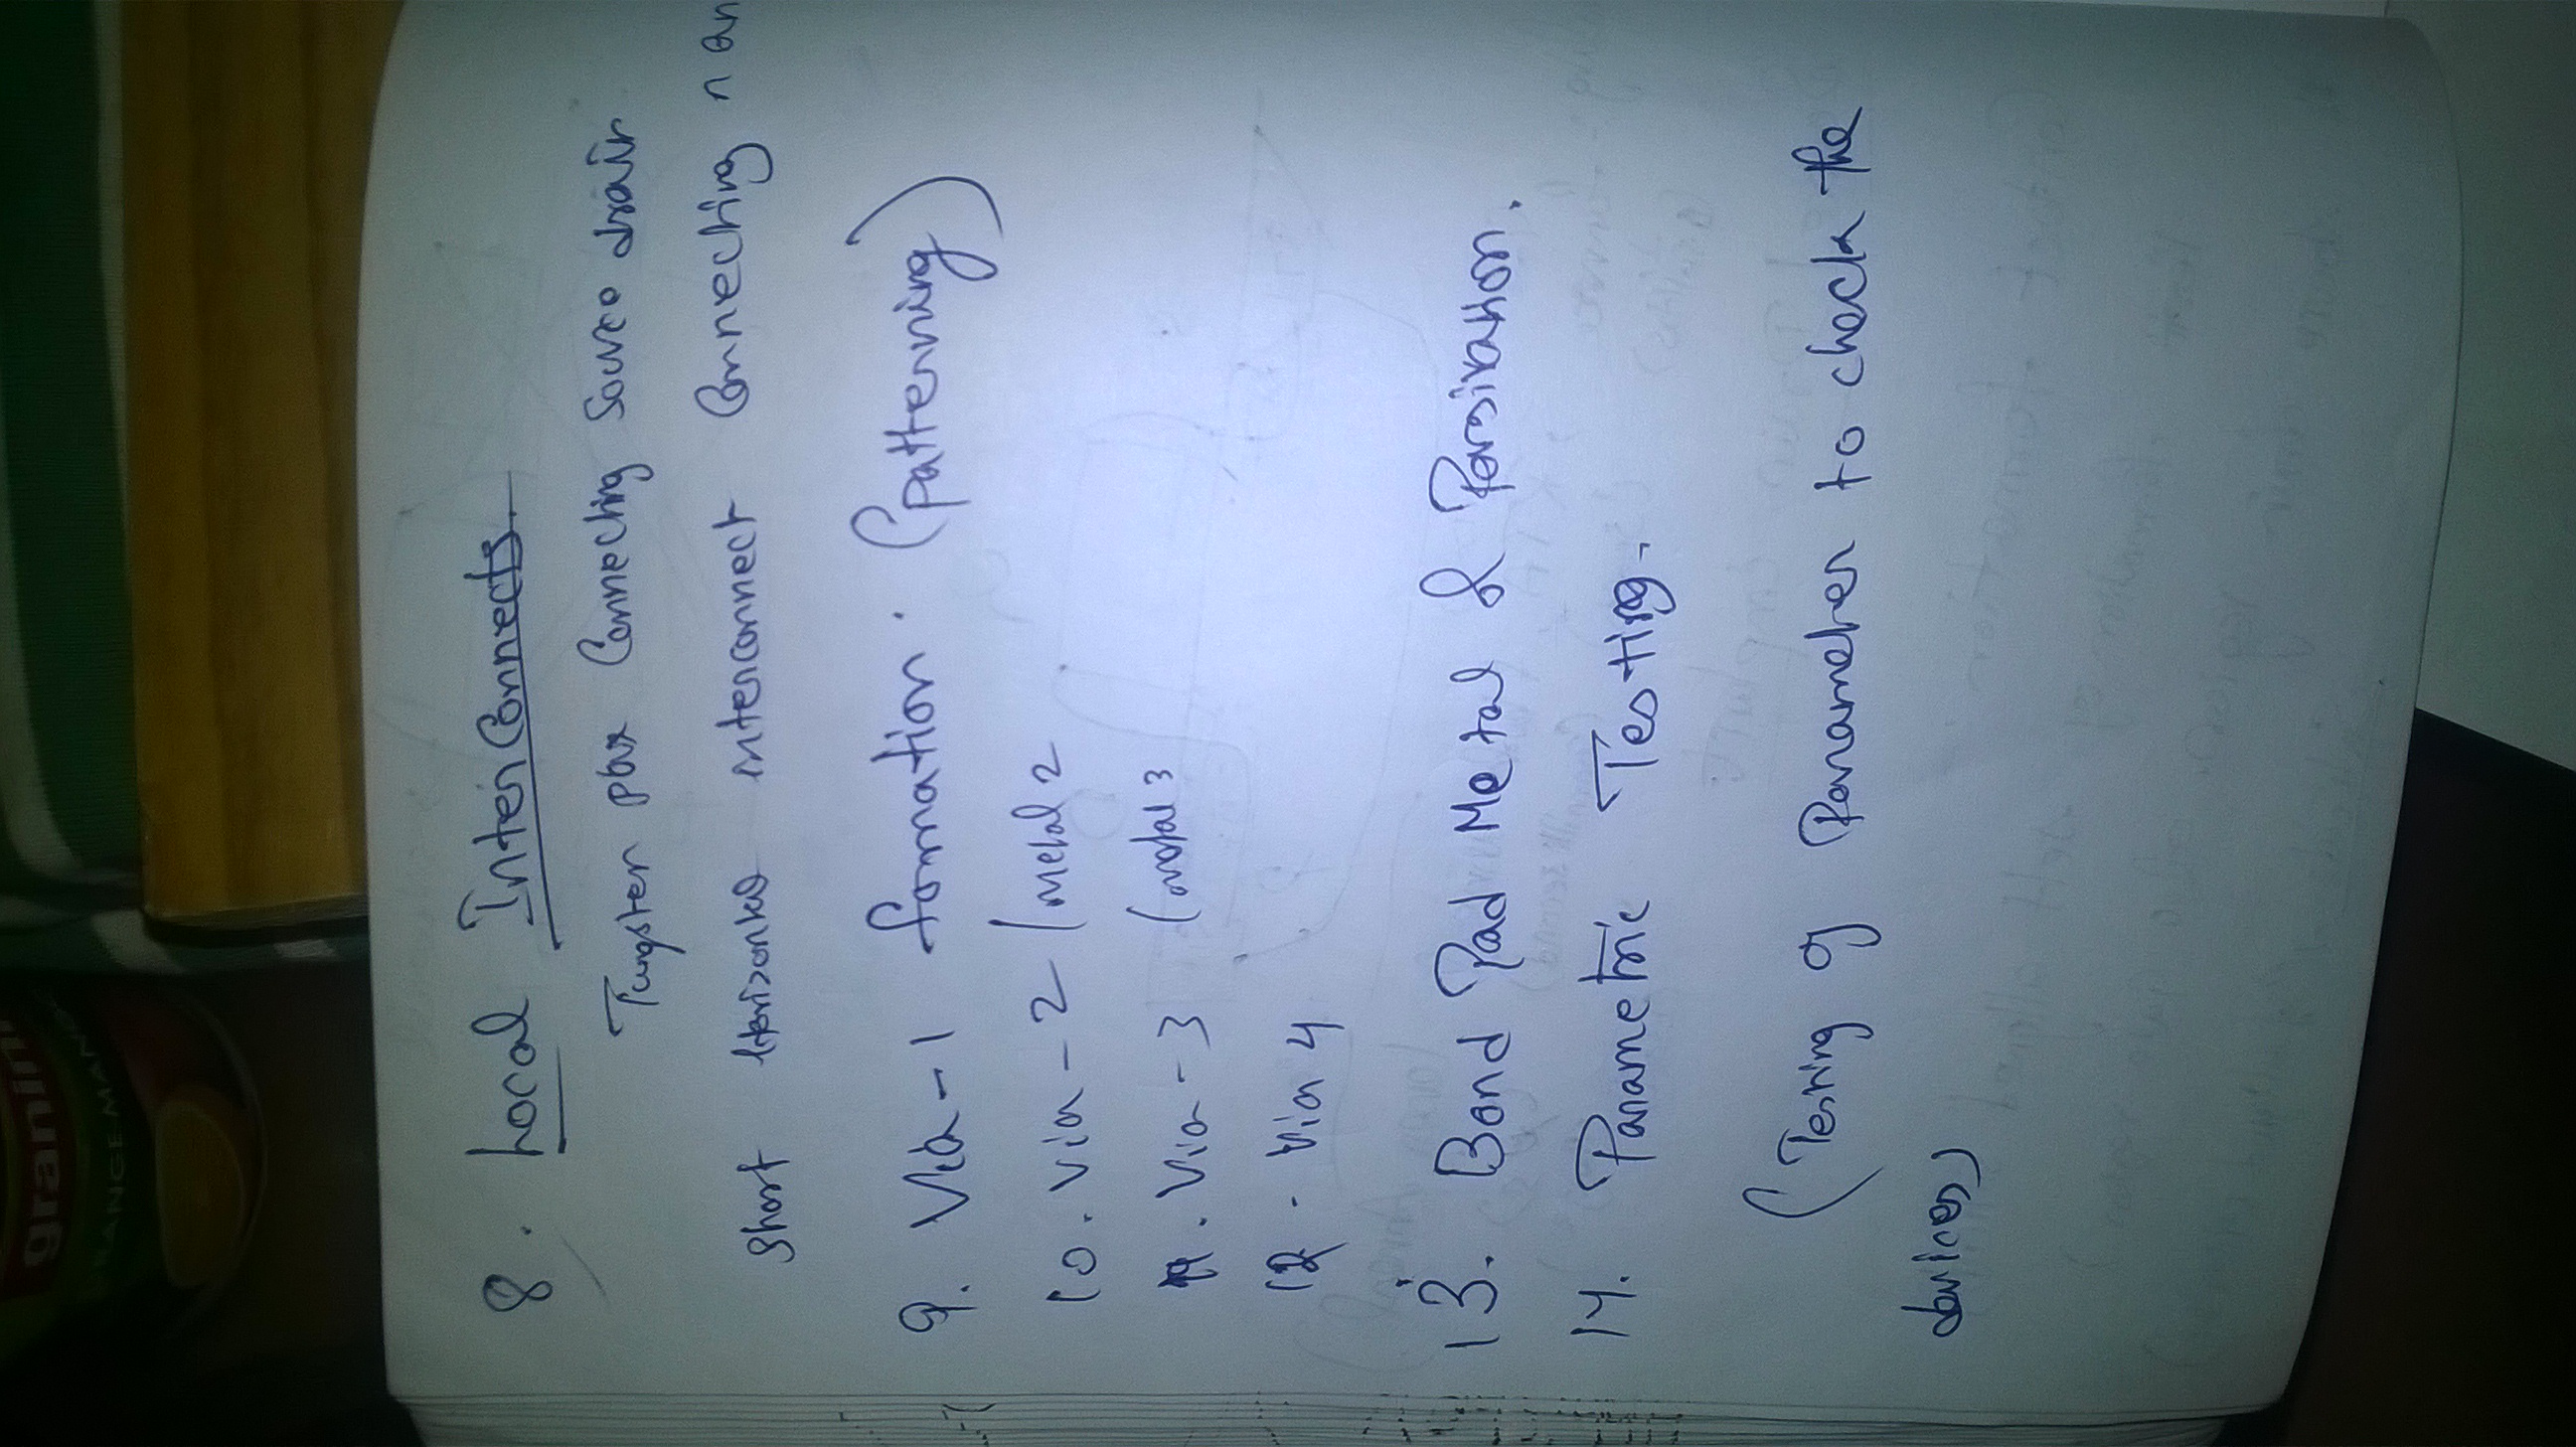 granini
RANGE-MANG
8. Local InterConnects.
Tungsten Connecting Source drain
Short Horizontal interconnect Connecting n an
9. Via-1 formation. (patterning)
10. Via-2 / metal 2
11. Via-3 (metal 3
12. Via 4
13. Bond Pad Metal &
14. Parametric Testing.
(Testing of Parameter to check the
devices)